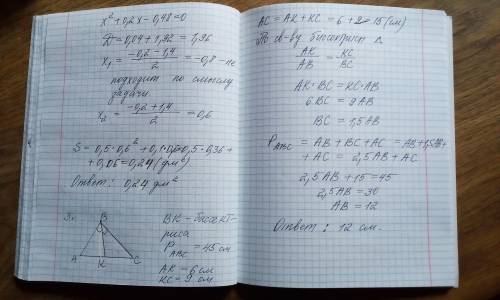 x² + 0,2x - 0,48 = 0
D = 0,04 + 1,92 = 1,96
x₁ = (-0,2 - 1,4)/2 = -0,8 - не
подходит по смыслу
задачи.
x₂ = (-0,2 + 1,4)/2 = 0,6
S = 0,5·0,6² + 0,1·0,6 = 0,5·0,36 +
+ 0,06 = 0,24 (дм²)
Ответ: 0,24 дм²
3.
B
A
K
C
BK - биссект-
риса
P_ABC = 45 см
AK = 6 см
KC = 9 см
AC = AK + KC = 6 + 9 = 15 (см)
По св-ву биссектрис Δ
AK/AB = KC/BC
AK·BC = KC·AB
6BC = 9AB
BC = 1,5AB
P_ABC = AB + BC + AC = AB + 1,5AB +
+ AC = 2,5AB + AC
2,5AB + 15 = 45
2,5AB = 30
AB = 12
Ответ: 12 см.